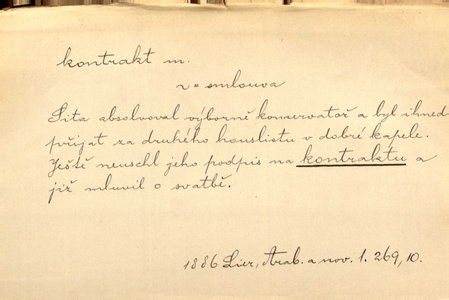 kontrakt m.
v = smlouva
Sita absolvoval výborně konservatoř a byl ihned
přijat za druhého houslistu v dobré kapele.
Ještě neuschl jeho podpis na kontraktu a
již mluvil o svatbě.
1886 Lier, Arab. a nov. 1. 269, 10.